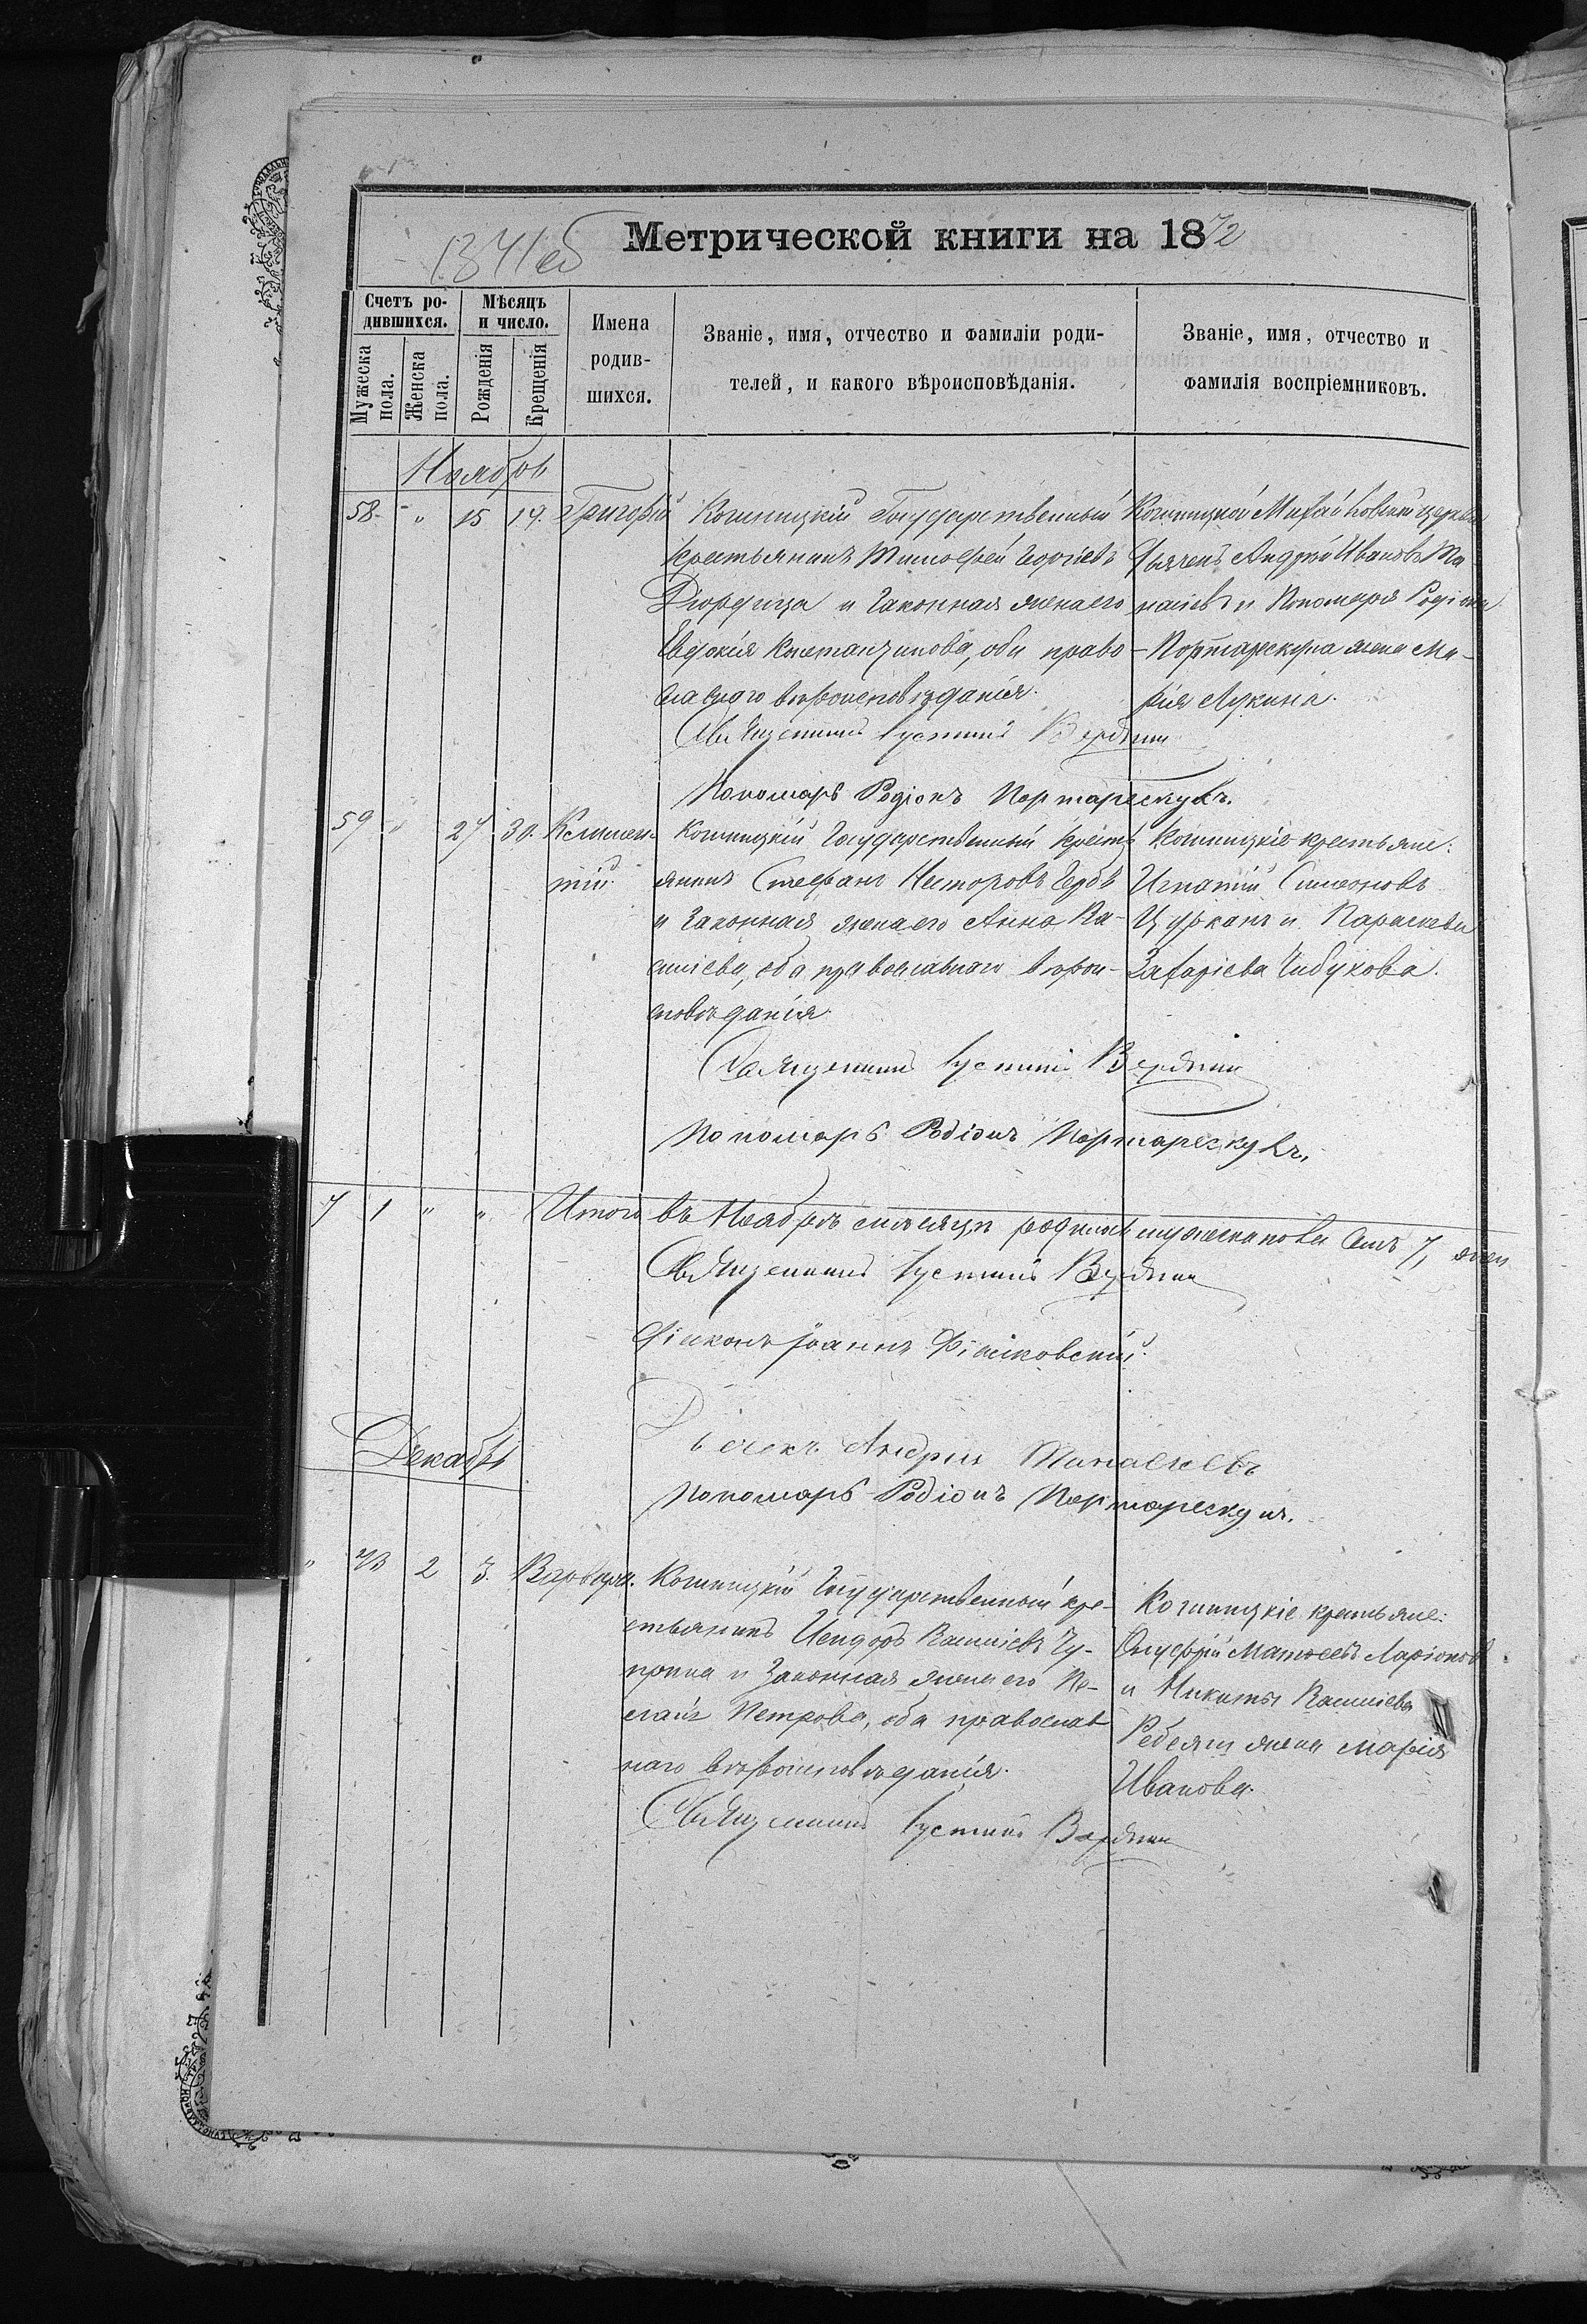 Метрической книги на 1872
Счетъ ро-
дившихся.
Мѣсяцъ
и число.
Мужеска пола.
Женска пола.
Рожденія
Крещенія
Имена
родив-
шихся.
Званіе, имя, отчество и фамиліи роди-
телей, и какого вѣроисповѣданія.
Званіе, имя, отчество и
фамилія воспріемниковъ.
Ноябрь
58. " 15 19. Григорій
Кошницкій Государственный
крестьянинъ Тимофей Георгіевъ
и законная жена его
Евдокія Константинова, оба право-
славнаго вѣроисповѣданія.
Священникъ Іустинъ
Пономарь Родіонъ Портарескулъ.
Кошницкой Михайловской церкви
Дьячекъ Андрей Ивановъ Ма-
насіевъ и Пономаря Родіона
Портарескула жена Ма-
рія Лукина.
59 " 27 30. Климен-
тій.
Кошницкій Государственный кресть-
янинъ Стефанъ Несторовъ
и законная жена его Анна Ва-
силіева, оба православнаго вѣрои-
сповѣданія
Священникъ Іустинъ
Пономарь Родіонъ Портарескулъ.
Кошницкіе крестьяне:
Игнатій Симеоновъ
Цурканъ и Параскева
Захаріева Чибукова.
7 1 " " Итого въ Ноябрѣ мѣсяцѣ родилось мужеска пола семь 7,
Священникъ Іустинъ
Діаконъ Іоаннъ
Дьячекъ Андрей Манасіевъ
Пономарь Родіонъ Портарескулъ.
Декабрь
" 2 3. Варвара.
Кошницкій Государственный кре-
стьянинъ Исидоръ Василіевъ Чу-
и законная жена его Пе-
лагія Петрова, оба православ-
наго вѣроисповѣданія.
Священникъ Іустинъ
Кошницкіе крестьяне:
Онуфрій Матѳеевъ Ларіоновъ
и Никиты Василіева
жена Марія
Иванова.